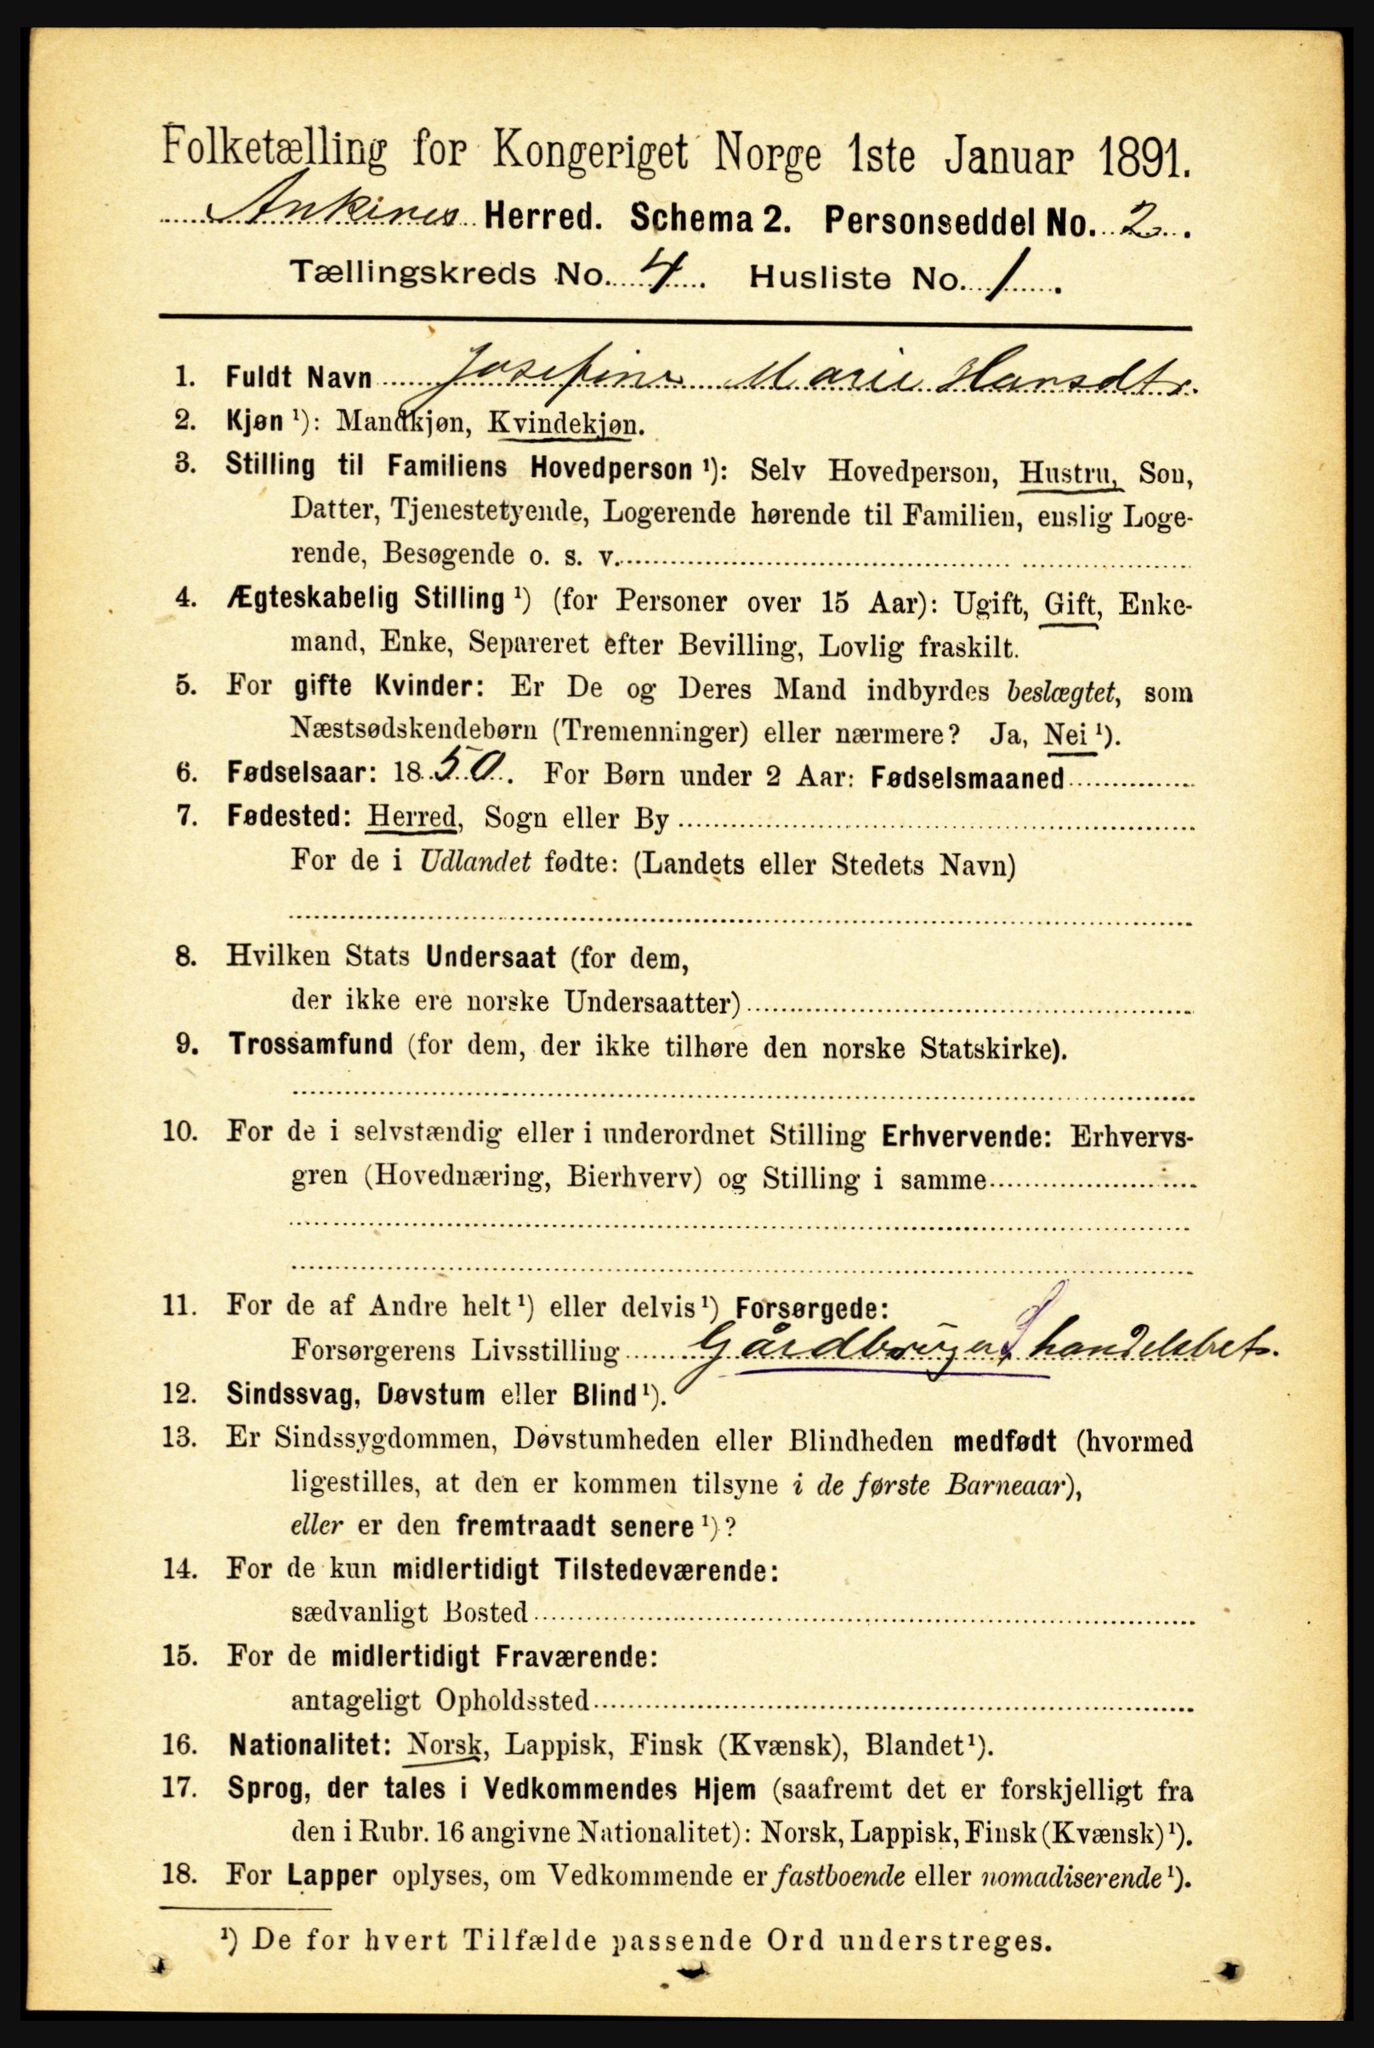 Folketælling for Kongeriget Norge 1ste Januar 1891.
Ankenes Herred. Schema 2. Personseddel No. 2.
Tællingskreds No. 4. Husliste No. 1.
1. Fuldt Navn Josefine Marie Hansdtr.
2. Kjøn ¹): Mandkjøn, Kvindekjøn.
3. Stilling til Familiens Hovedperson ¹): Selv Hovedperson, Hustru, Søn,
Datter, Tjenestetyende, Logerende hørende til Familien, enslig Loge-
rende, Besøgende o. s. v.
4. Ægteskabelig Stilling ¹) (for Personer over 15 Aar): Ugift, Gift, Enke-
mand, Enke, Separeret efter Bevilling, Lovlig fraskilt.
5. For gifte Kvinder: Er De og Deres Mand indbyrdes beslægtet, som
Næstsødskendebørn (Tremenninger) eller nærmere? Ja, Nei ¹).
6. Fødselsaar: 1850. For Børn under 2 Aar: Fødselsmaaned
7. Fødested: Herred, Sogn eller By
For de i Udlandet fødte: (Landets eller Stedets Navn)
8. Hvilken Stats Undersaat (for dem,
der ikke ere norske Undersaatter)
9. Trossamfund (for dem, der ikke tilhøre den norske Statskirke).
10. For de i selvstændig eller i underordnet Stilling Erhvervende: Erhvervs-
gren (Hovednæring, Bierhverv) og Stilling i samme
11. For de af Andre helt ¹) eller delvis ¹) Forsørgede:
Forsørgerens Livsstilling Gårdbruger handelsbet.
12. Sindssvag, Døvstum eller Blind ¹).
13. Er Sindssygdommen, Døvstumheden eller Blindheden medfødt (hvormed
ligestilles, at den er kommen tilsyne i de første Barneaar),
eller er den fremtraadt senere ¹)?
14. For de kun midlertidigt Tilstedeværende:
sædvanligt Bosted
15. For de midlertidigt Fraværende:
antageligt Opholdssted
16. Nationalitet: Norsk, Lappisk, Finsk (Kvænsk), Blandet ¹).
17. Sprog, der tales i Vedkommendes Hjem (saafremt det er forskjelligt fra
den i Rubr. 16 angivne Nationalitet): Norsk, Lappisk, Finsk (Kvænsk) ¹).
18. For Lapper oplyses, om Vedkommende er fastboende eller nomadiserende ¹).
¹) De for hvert Tilfælde passende Ord understreges.